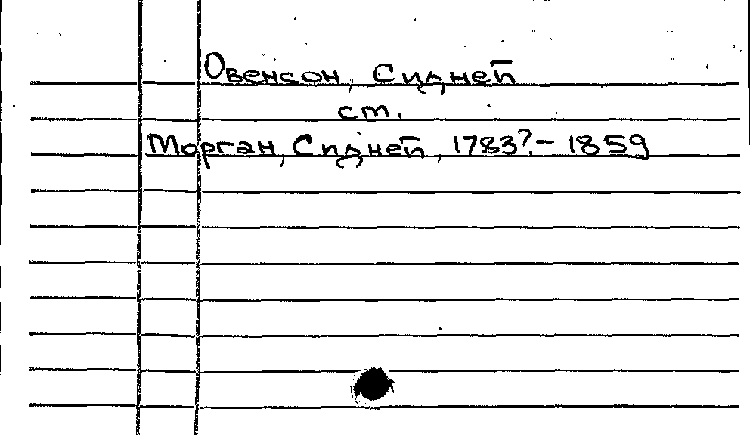 Овенсон, Сидней
ст.
Морган, Сидней, 1783?- 1859